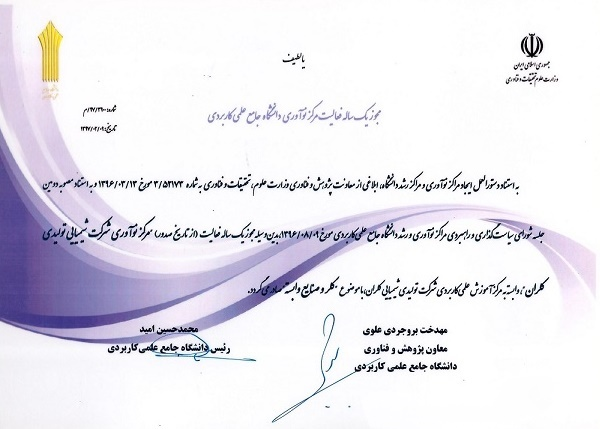 یا لطیف
جمهوری اسلامی ایران
وزارت علوم، تحقیقات و فناوری
شماره: ۹۷/۳۹۰۰/م
تاریخ: ۱۳۹۷/۰۲/۰۹
مجوز یک ساله فعالیت مرکز نوآوری دانشگاه جامع علمی کاربردی
به استناد دستورالعمل ایجاد مراکز نوآوری و مراکز رشد دانشگاه، ابلاغی از معاونت پژوهش و فناوری وزارت علوم، تحقیقات و فناوری به شماره ۳/۵۲۱۷۳ مورخ ۱۳۹۶/۰۳/۱۳ و به استناد مصوبه دومین
جلسه شورای سیاست گذاری و راهبردی مراکز نوآوری و رشد دانشگاه جامع علمی کاربردی مورخ ۱۳۹۶/۰۸/۰۹، بدین وسیله مجوز یک ساله فعالیت (از تاریخ صدور) مرکز نوآوری شرکت شیمیایی تولیدی
کلران وابسته به مرکز آموزش علمی کاربردی شرکت تولیدی شیمیایی کلران، با موضوع کلر و صنایع وابسته صادر می گردد.
مهدخت بروجردی علوی
معاون پژوهش و فناوری
دانشگاه جامع علمی کاربردی
محمدحسین امید
رئیس دانشگاه جامع علمی کاربردی